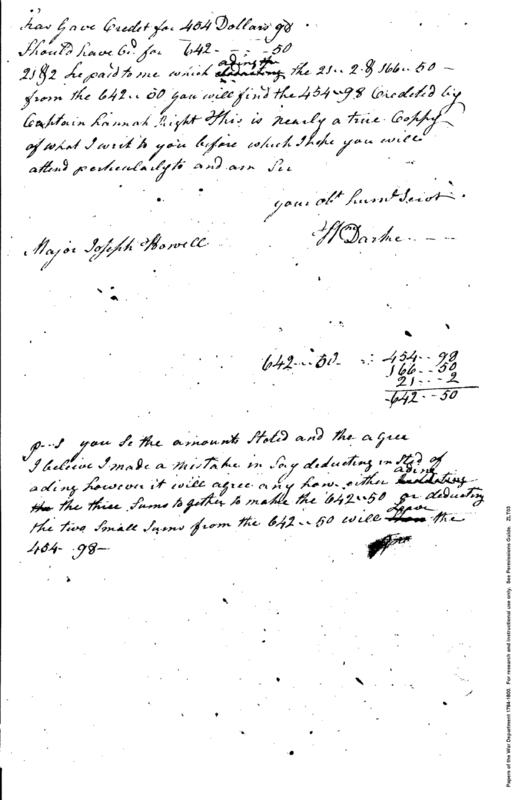 has Gave Credet for 454 Dollars 98
Should have Cd. for 642 - - - 50
21 & 2 he paid to me which ading the deducting the 21 .. 2 & 166 .. 50 -
from the 642 .. 50 you will find the 454 .. 98 Credeted by
Captain Hannah Right this is nearly a true Coppy
of what I writ to you before which I hope you will
attend perticularly to and am Sir
your obt. humb. Servt.
Wm Darke - - -
Major Joseph Howell
642 .. 50 -
454 .. 98
166 .. 50
21 - - 2
642 - - 50
p - s you Se the amounts Stoted and the agree
I beleive I made a mistake in Say deducting in Sted of
ading however it will agree any how either ading
the the three Sums together to make the 642 .. 50 or deducting
the two Small Sums from the 642 .. 50 will Leave the
454 - 98 -
Papers of the War Department 1784-1800. For research and instructional use only. See Permissions Guide. ZL703